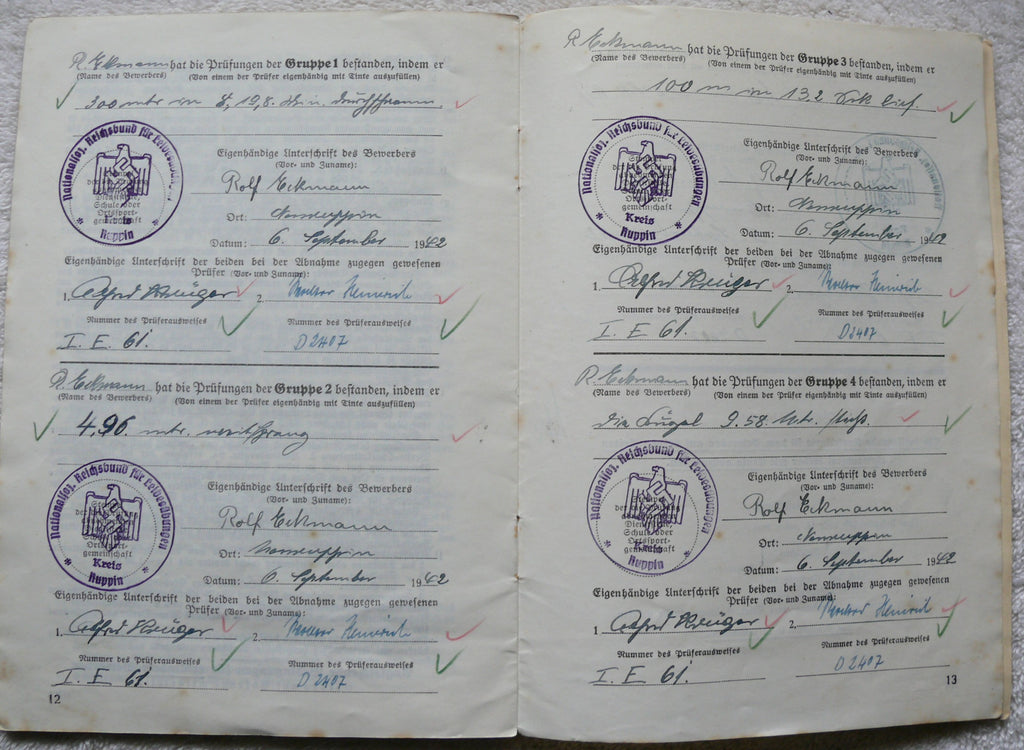 R. Eckmann hat die Prüfungen der Gruppe 1 bestanden, indem er
(Name des Bewerbers) (Von einem der Prüfer eigenhändig mit Tinte auszufüllen)
300 mtr in
Nationalsoz. Reichsbund für Leibesübungen
Kreis
Ruppin
Eigenhändige Unterschrift des Bewerbers
(Vor- und Zuname):
Rolf Eckmann
Ort: Neuruppin
Datum: 6. September 1942
Eigenhändige Unterschrift der beiden bei der Abnahme zugegen gewesenen
Prüfer (Vor- und Zuname):
1. Alfred Krüger 2. Heinrich
Nummer des Prüferausweises Nummer des Prüferausweises
I. E. 61. D 2407
R. Eckmann hat die Prüfungen der Gruppe 2 bestanden, indem er
(Name des Bewerbers) (Von einem der Prüfer eigenhändig mit Tinte auszufüllen)
4,96 mtr. weitsprang
Nationalsoz. Reichsbund für Leibesübungen
Kreis
Ruppin
Eigenhändige Unterschrift des Bewerbers
(Vor- und Zuname):
Rolf Eckmann
Ort: Neuruppin
Datum: 6. September 1942
Eigenhändige Unterschrift der beiden bei der Abnahme zugegen gewesenen
Prüfer (Vor- und Zuname):
1. Alfred Krüger 2. Heinrich
Nummer des Prüferausweises Nummer des Prüferausweises
I. E. 61. D 2407
12
R. Eckmann hat die Prüfungen der Gruppe 3 bestanden, indem er
(Name des Bewerbers) (Von einem der Prüfer eigenhändig mit Tinte auszufüllen)
100 m in 13,2 Sek lief.
Nationalsoz. Reichsbund für Leibesübungen
Kreis
Ruppin
Eigenhändige Unterschrift des Bewerbers
(Vor- und Zuname):
Rolf Eckmann
Ort: Neuruppin
Datum: 6. September 1942
Eigenhändige Unterschrift der beiden bei der Abnahme zugegen gewesenen
Prüfer (Vor- und Zuname):
1. Alfred Krüger 2. Heinrich
Nummer des Prüferausweises Nummer des Prüferausweises
I. E. 61. D 2407
R. Eckmann hat die Prüfungen der Gruppe 4 bestanden, indem er
(Name des Bewerbers) (Von einem der Prüfer eigenhändig mit Tinte auszufüllen)
die Kugel 9.58 Mtr. stieß.
Nationalsoz. Reichsbund für Leibesübungen
Kreis
Ruppin
Eigenhändige Unterschrift des Bewerbers
(Vor- und Zuname):
Rolf Eckmann
Ort: Neuruppin
Datum: 6. September 1942
Eigenhändige Unterschrift der beiden bei der Abnahme zugegen gewesenen
Prüfer (Vor- und Zuname):
1. Alfred Krüger 2. Heinrich
Nummer des Prüferausweises Nummer des Prüferausweises
I. E. 61. D 2407
13